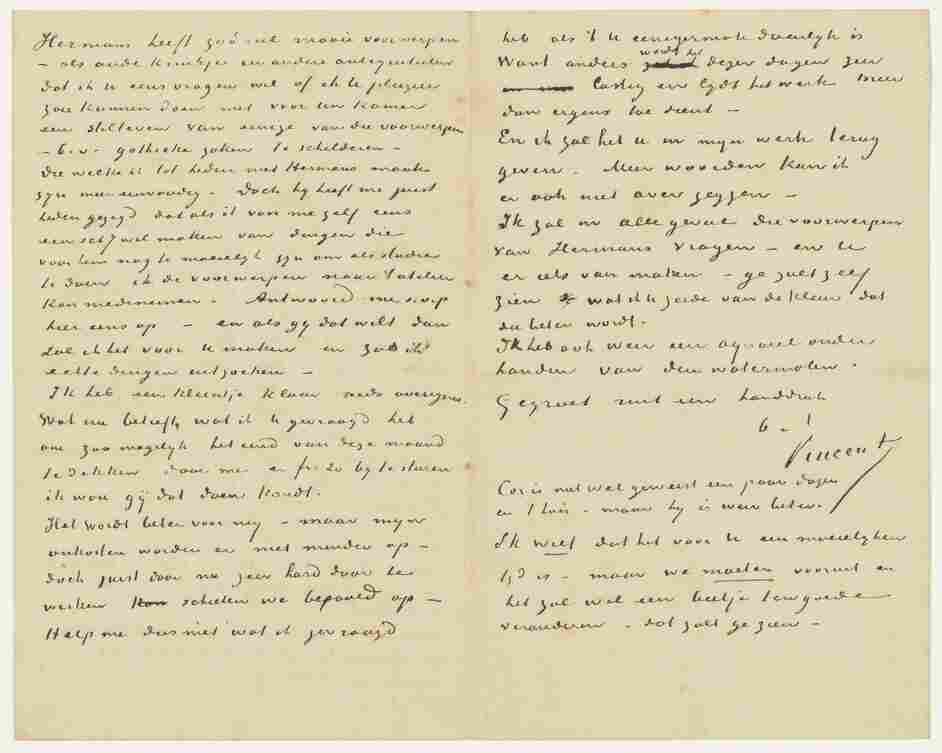 Hermans heeft zoo veel mooie voorwerpen
– als oude kruikjes en andere antiquiteiten
dat ik u eens vragen wil of ik u plezier
zou kunnen doen met voor Uw kamer
een stilleven van eenige van die voorwerpen
– b.v. gothieke zaken te schilderen –
Die welke ik tot heden met Hermans maakte
zyn meer eenvoudig. Doch hy heeft me juist
heden gezegd dat als ik voor me zelf eens
een wil maken van dingen die
voor hem nog te moeielyk zyn om als studie
te doen ik de voorwerpen naar 't atelier
kan medenemen. Antwoord me s.v.p.
hier eens op – en als gy dat wilt dan
zal ik het voor U maken en zal ik
echte dingen uitzoeken –
Ik heb een kleintje klaar reeds overigens.
Wat nu betreft wat ik U gevraagd heb
om zoo mogelyk het eind van deze maand
te dekken door me een fr. 20 by te sturen
ik wou gy dat doen kondt.
Het wordt beter voor my – maar myn
onkosten worden er niet minder op –
doch juist door nu zeer hard door te
werken kan schieten we bepaald op –
Help me dus met wat ik gevraagd
heb als 't U eenigermate doenlyk is
Want anders wordt het dezer dagen zeer
lastig en lydt het werk meer
dan ergens toe dient –
En ik zal het U in myn werk terug
geven. Meer woorden kan ik
er ook niet over zeggen –
Ik zal in alle geval die voorwerpen
van Hermans vragen – en U
er iets van maken – ge zult zelf
zien wat ik U zeide van de kleur dat
die beter wordt.
Ik heb ook weer een aquarel onder
handen van den watermolen.
Gegroet met een handdruk
t. à t.
Vincent
Cor is niet wel geweest een paar dagen
en t'huis – maar hy is weer beter.
Ik weet dat het voor U een moeielyken
tyd is – maar we moeten vooruit en
het zal wel een beetje ten goede
veranderen – dat zult ge zien –